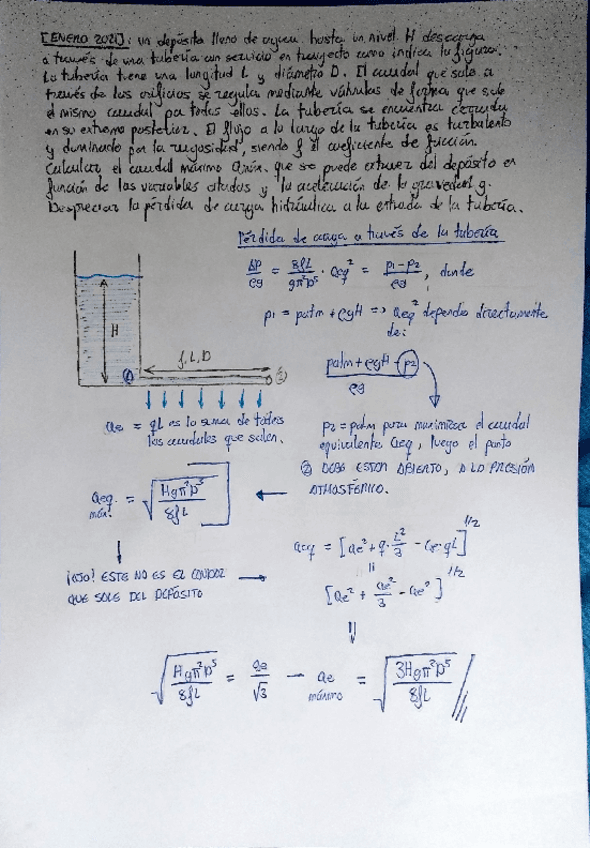 [ENERO 2021]: un depósito lleno de agua hasta un nivel H descarga
a través de una tubería con servicio en trayecto como indica la figura.
La tubería tiene una longitud L y diámetro D. El caudal que sale a
través de los orificios se regula mediante válvulas de forma que sale
el mismo caudal por todos ellos. La tubería se encuentra cerrada
en su extremo posterior. El flujo a lo largo de la tubería es turbulento
y dominado por la rugosidad, siendo f el coeficiente de fricción.
Calcular el caudal máximo Qmáx. que se puede extraer del depósito en
función de las variables citadas y la aceleración de la gravedad g.
Despreciar la pérdida de carga hidráulica a la entrada de la tubería.
Pérdida de carga a través de la tubería
ΔP/ρg = 8fL/gπ²D⁵ · Qeq² = p1-p2/ρg, donde
p1 = patm + ρgH => Qeq² depende directamente
de:
patm + ρgH - p2/ρg
H
f, L, D
1
2
Qe = qL es la suma de todos
los caudales que salen.
p2 = patm para maximizar el caudal
equivalente Qeq, luego el punto
2 DEBE ESTAR ABIERTO, A LA PRESIÓN
ATMOSFÉRICA.
Qeq máx. = √Hgπ²D⁵/8fL
Qeq = [Qe² + q·L²/3 - Qe·qL]^1/2
=
[Qe² + Qe²/3 - Qe²]^1/2
¡OJO! ESTE NO ES EL CAUDAL
QUE SALE DEL DEPÓSITO
√Hgπ²D⁵/8fL = Qe/√3 → Qe máximo = √3Hgπ²D⁵/8fL